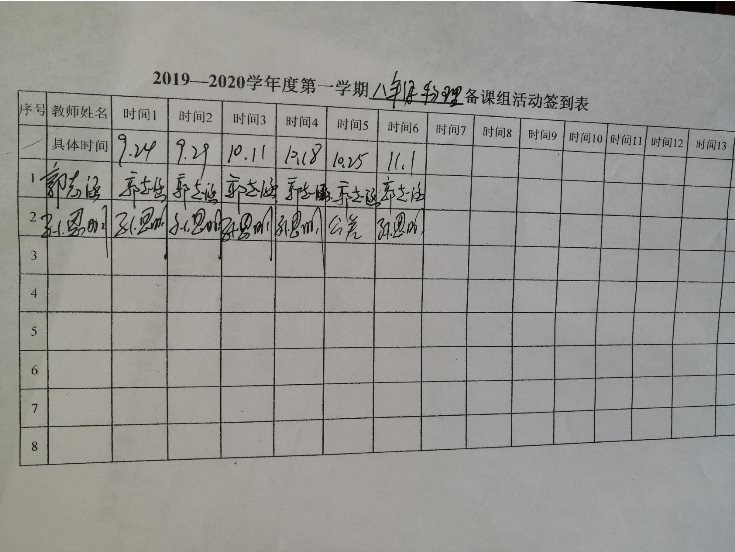 2019—2020学年度第一学期八年级物理备课组活动签到表
序号 教师姓名 时间1 时间2 时间3 时间4 时间5 时间6 时间7 时间8 时间9 时间10 时间11 时间12 时间13
/ 具体时间 9.24 9.29 10.11 10.18 10.25 11.1
1 郭志海 郭志海 郭志海 郭志海 郭志海 郭志海 郭志海
2 孙恩明 孙恩明 孙恩明 孙恩明 孙恩明 公差 孙恩明
3
4
5
6
7
8